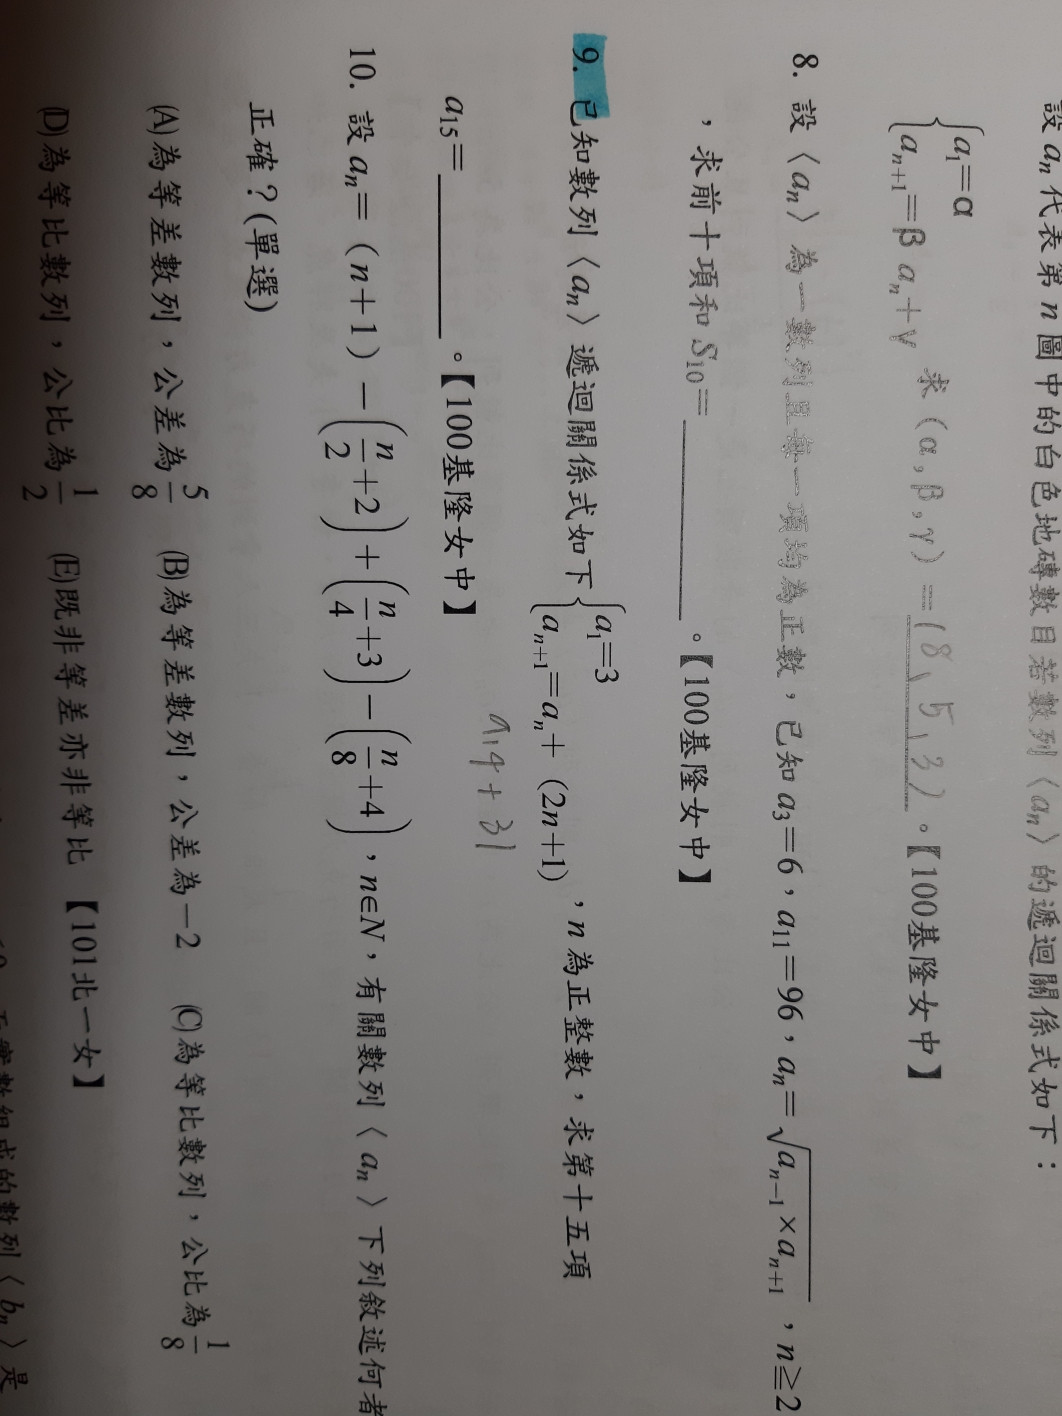 設 aₙ 代表第 n 圖中的白色地磚數目若數列〈aₙ〉的遞迴關係式如下：
{a₁=α
aₙ₊₁=β aₙ+γ 求（α , β , γ）=(8、5、3)。【100基隆女中】
8. 設〈aₙ〉為一數列且每一項均為正數，已知 a₃=6，a₁₁=96，aₙ=√(aₙ₋₁×aₙ₊₁)，n≧2
，求前十項和 S₁₀=＿＿＿＿＿＿。【100基隆女中】
9. 已知數列〈aₙ〉遞迴關係式如下{a₁=3
aₙ₊₁=aₙ+（2n+1），n 為正整數，求第十五項
a₁₄+31
a₁₅=＿＿＿＿＿＿。【100基隆女中】
10. 設 aₙ=（n+1）−(n/2+2)+(n/4+3)−(n/8+4)，n∈N，有關數列〈aₙ〉下列敘述何者
正確？(單選)
(A)為等差數列，公差為5/8 (B)為等差數列，公差為−2 (C)為等比數列，公比為1/8
(D)為等比數列，公比為1/2 (E)既非等差亦非等比 【101北一女】
數組成的數列〈bₙ〉是